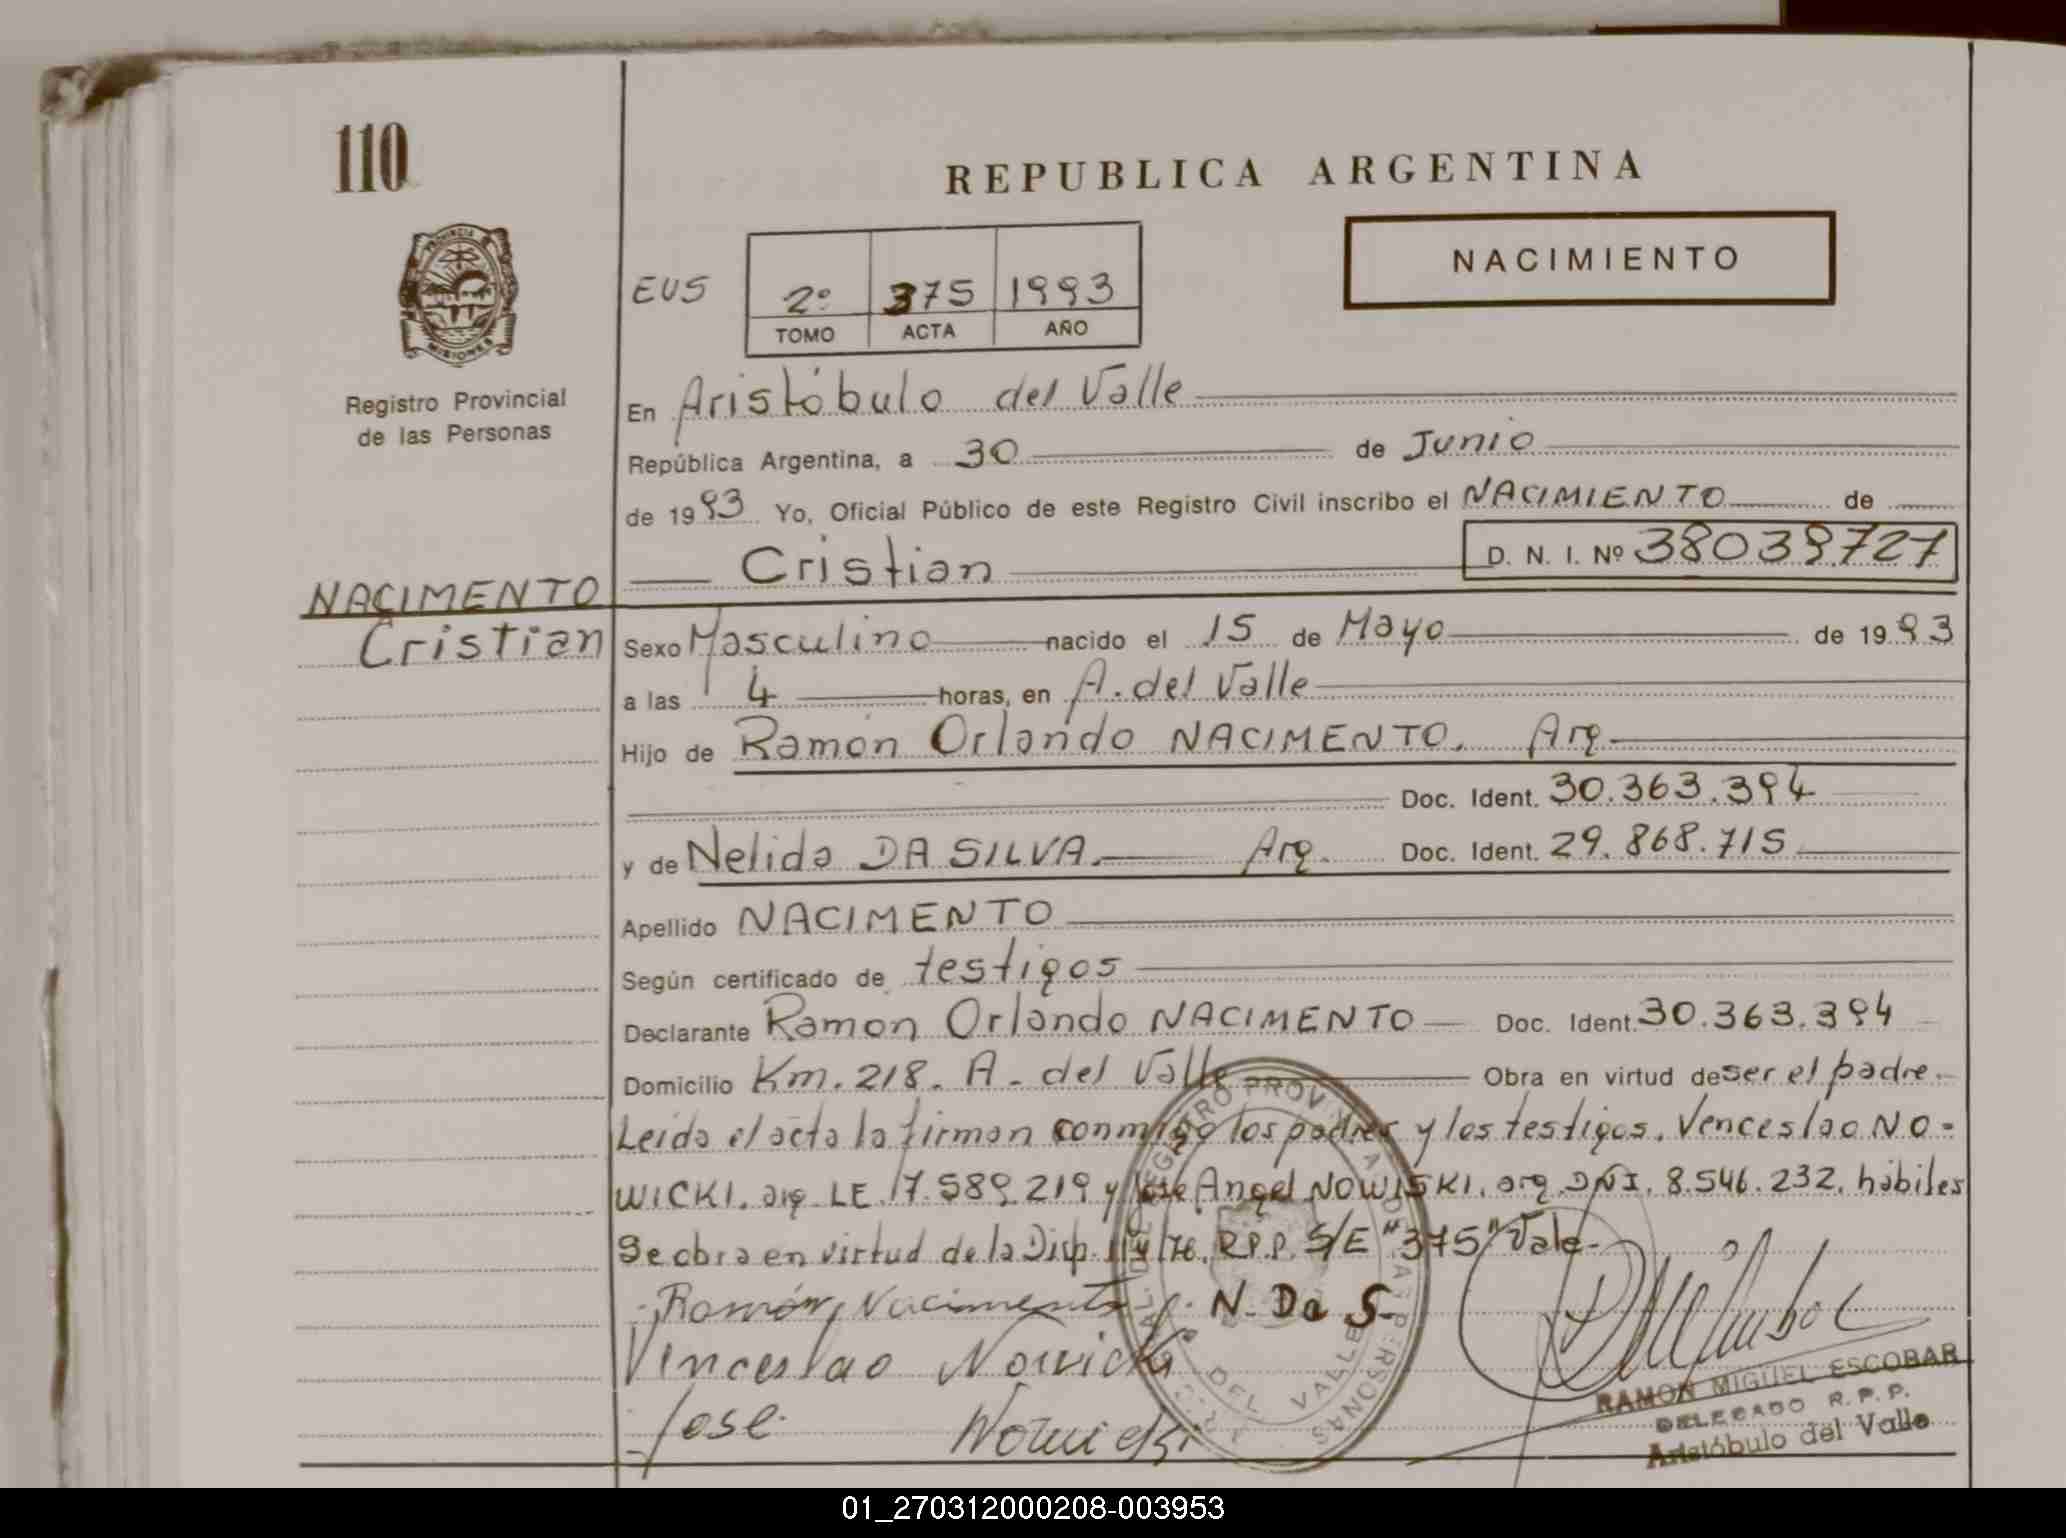 110
REPUBLICA ARGENTINA
NACIMIENTO
PROVINCIA
MISIONES
EUS
2º 375 1993
TOMO ACTA AÑO
Registro Provincial
de las Personas
En Aristóbulo del Valle
República Argentina, a 30 de Junio
de 1993 Yo, Oficial Público de este Registro Civil inscribo el NACIMIENTO de
Cristian D. N. I. Nº 38039.727
NACIMENTO
Cristian
Sexo Masculino nacido el 15 de Mayo de 1993
a las 4 horas, en A. del Valle
Hijo de Ramón Orlando NACIMENTO. Arg.
Doc. Ident. 30.363.394
y de Nelida DA SILVA. Arg. Doc. Ident. 29.868.715
Apellido NACIMENTO
Según certificado de testigos
Declarante Ramon Orlando NACIMENTO Doc. Ident. 30.363.394
Domicilio Km. 218. A. del Valle Obra en virtud de ser el padre.
Leida el acta la firman conmigo los padres y los testigos. Venceslao NO-
WICKI. arg. LE. 17.589.219 y José Angel NOWISKI. arg. DNI. 8.546.232. hábiles
Se obra en virtud de la Disp. R.P.P. S/E "375" Vale-
Ramón Nacimento N. Da S.
Venceslao Nowicki
Jose Nowicki
DEL REGISTRO PROVINCIAL DE LAS PERSONAS
DEL VALLE
RAMON MIGUEL ESCOBAR
DELEGADO R. P. P.
Aristóbulo del Valle
01_270312000208-003953